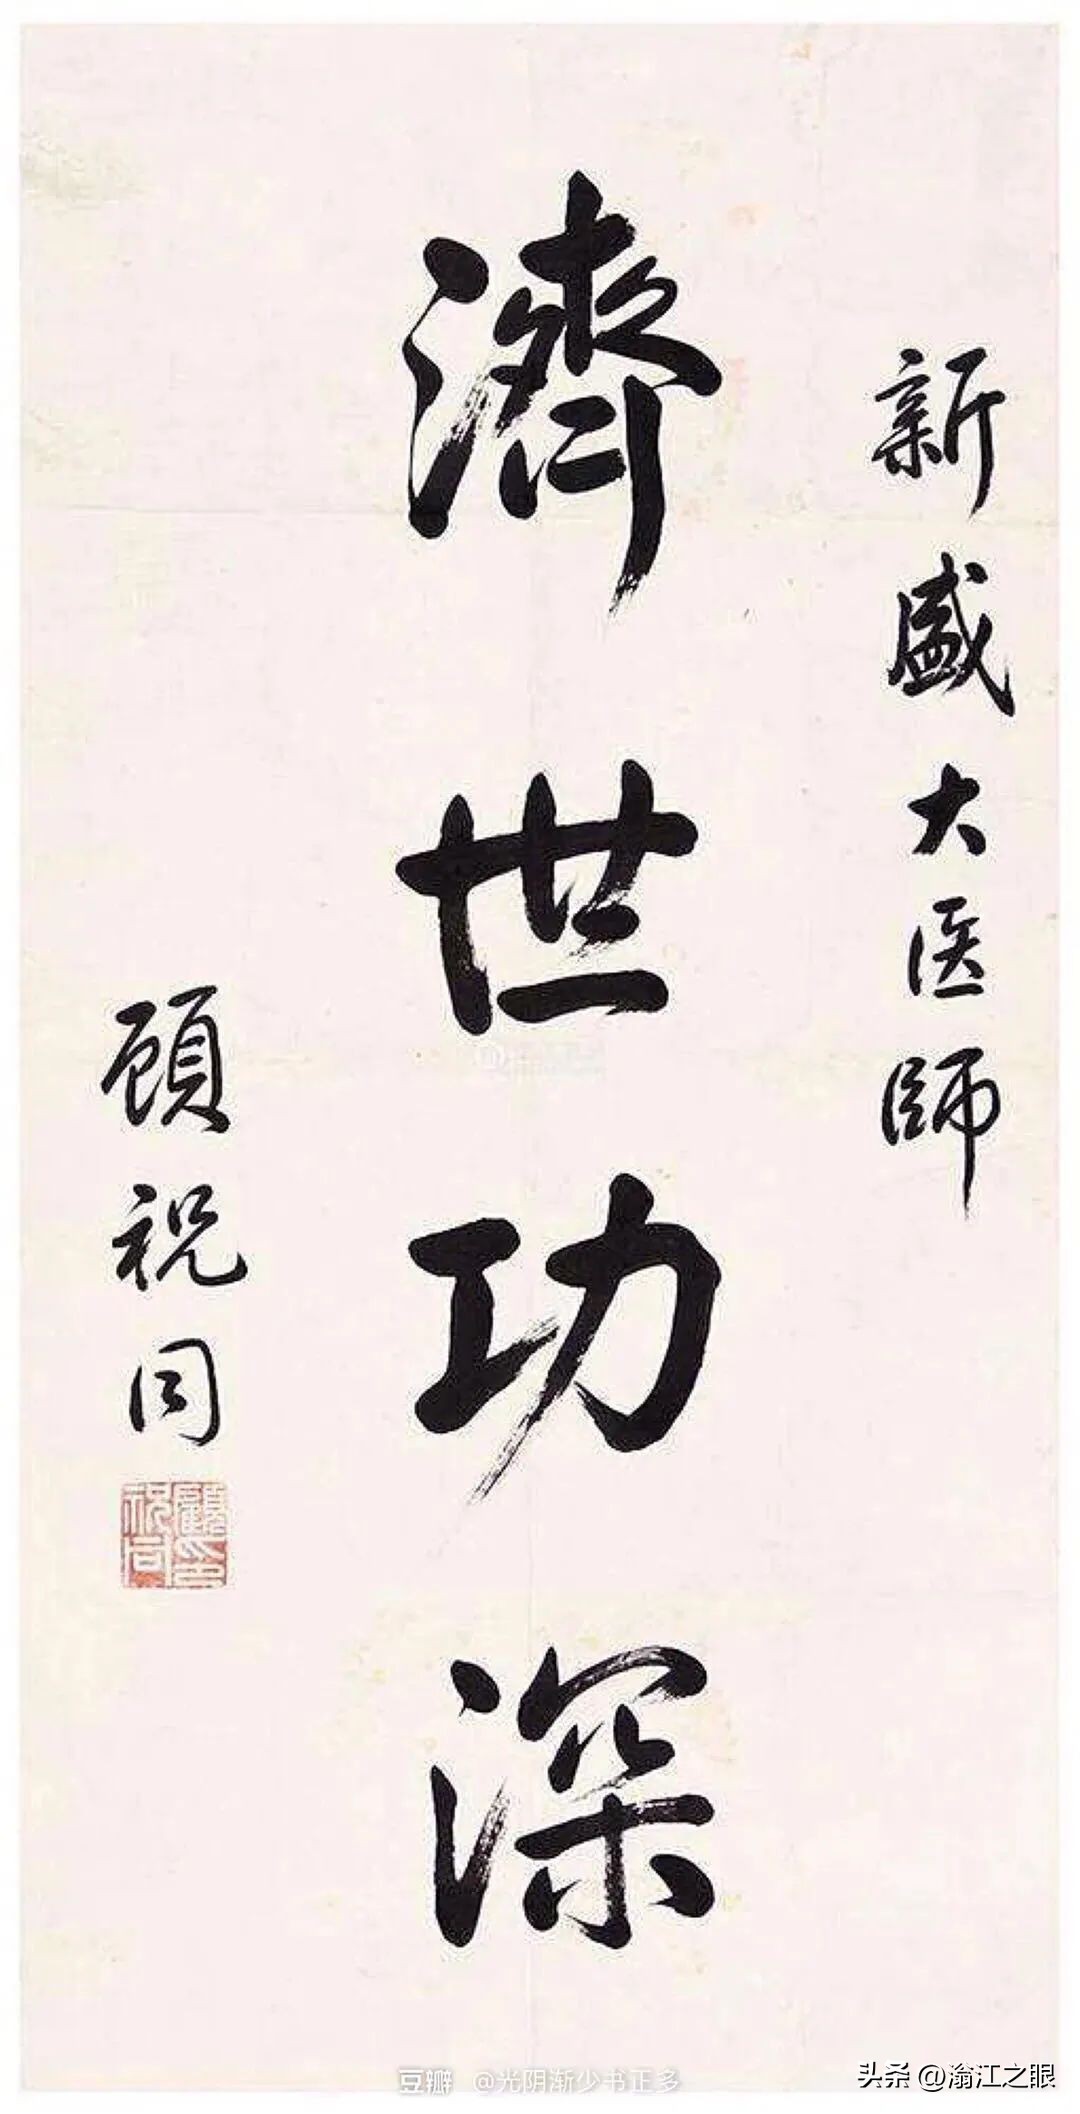 新盛大医師
濟世功深
顾祝同
顧祝同印
豆瓣 @光阴渐少书正多
头条 @滃江之眼